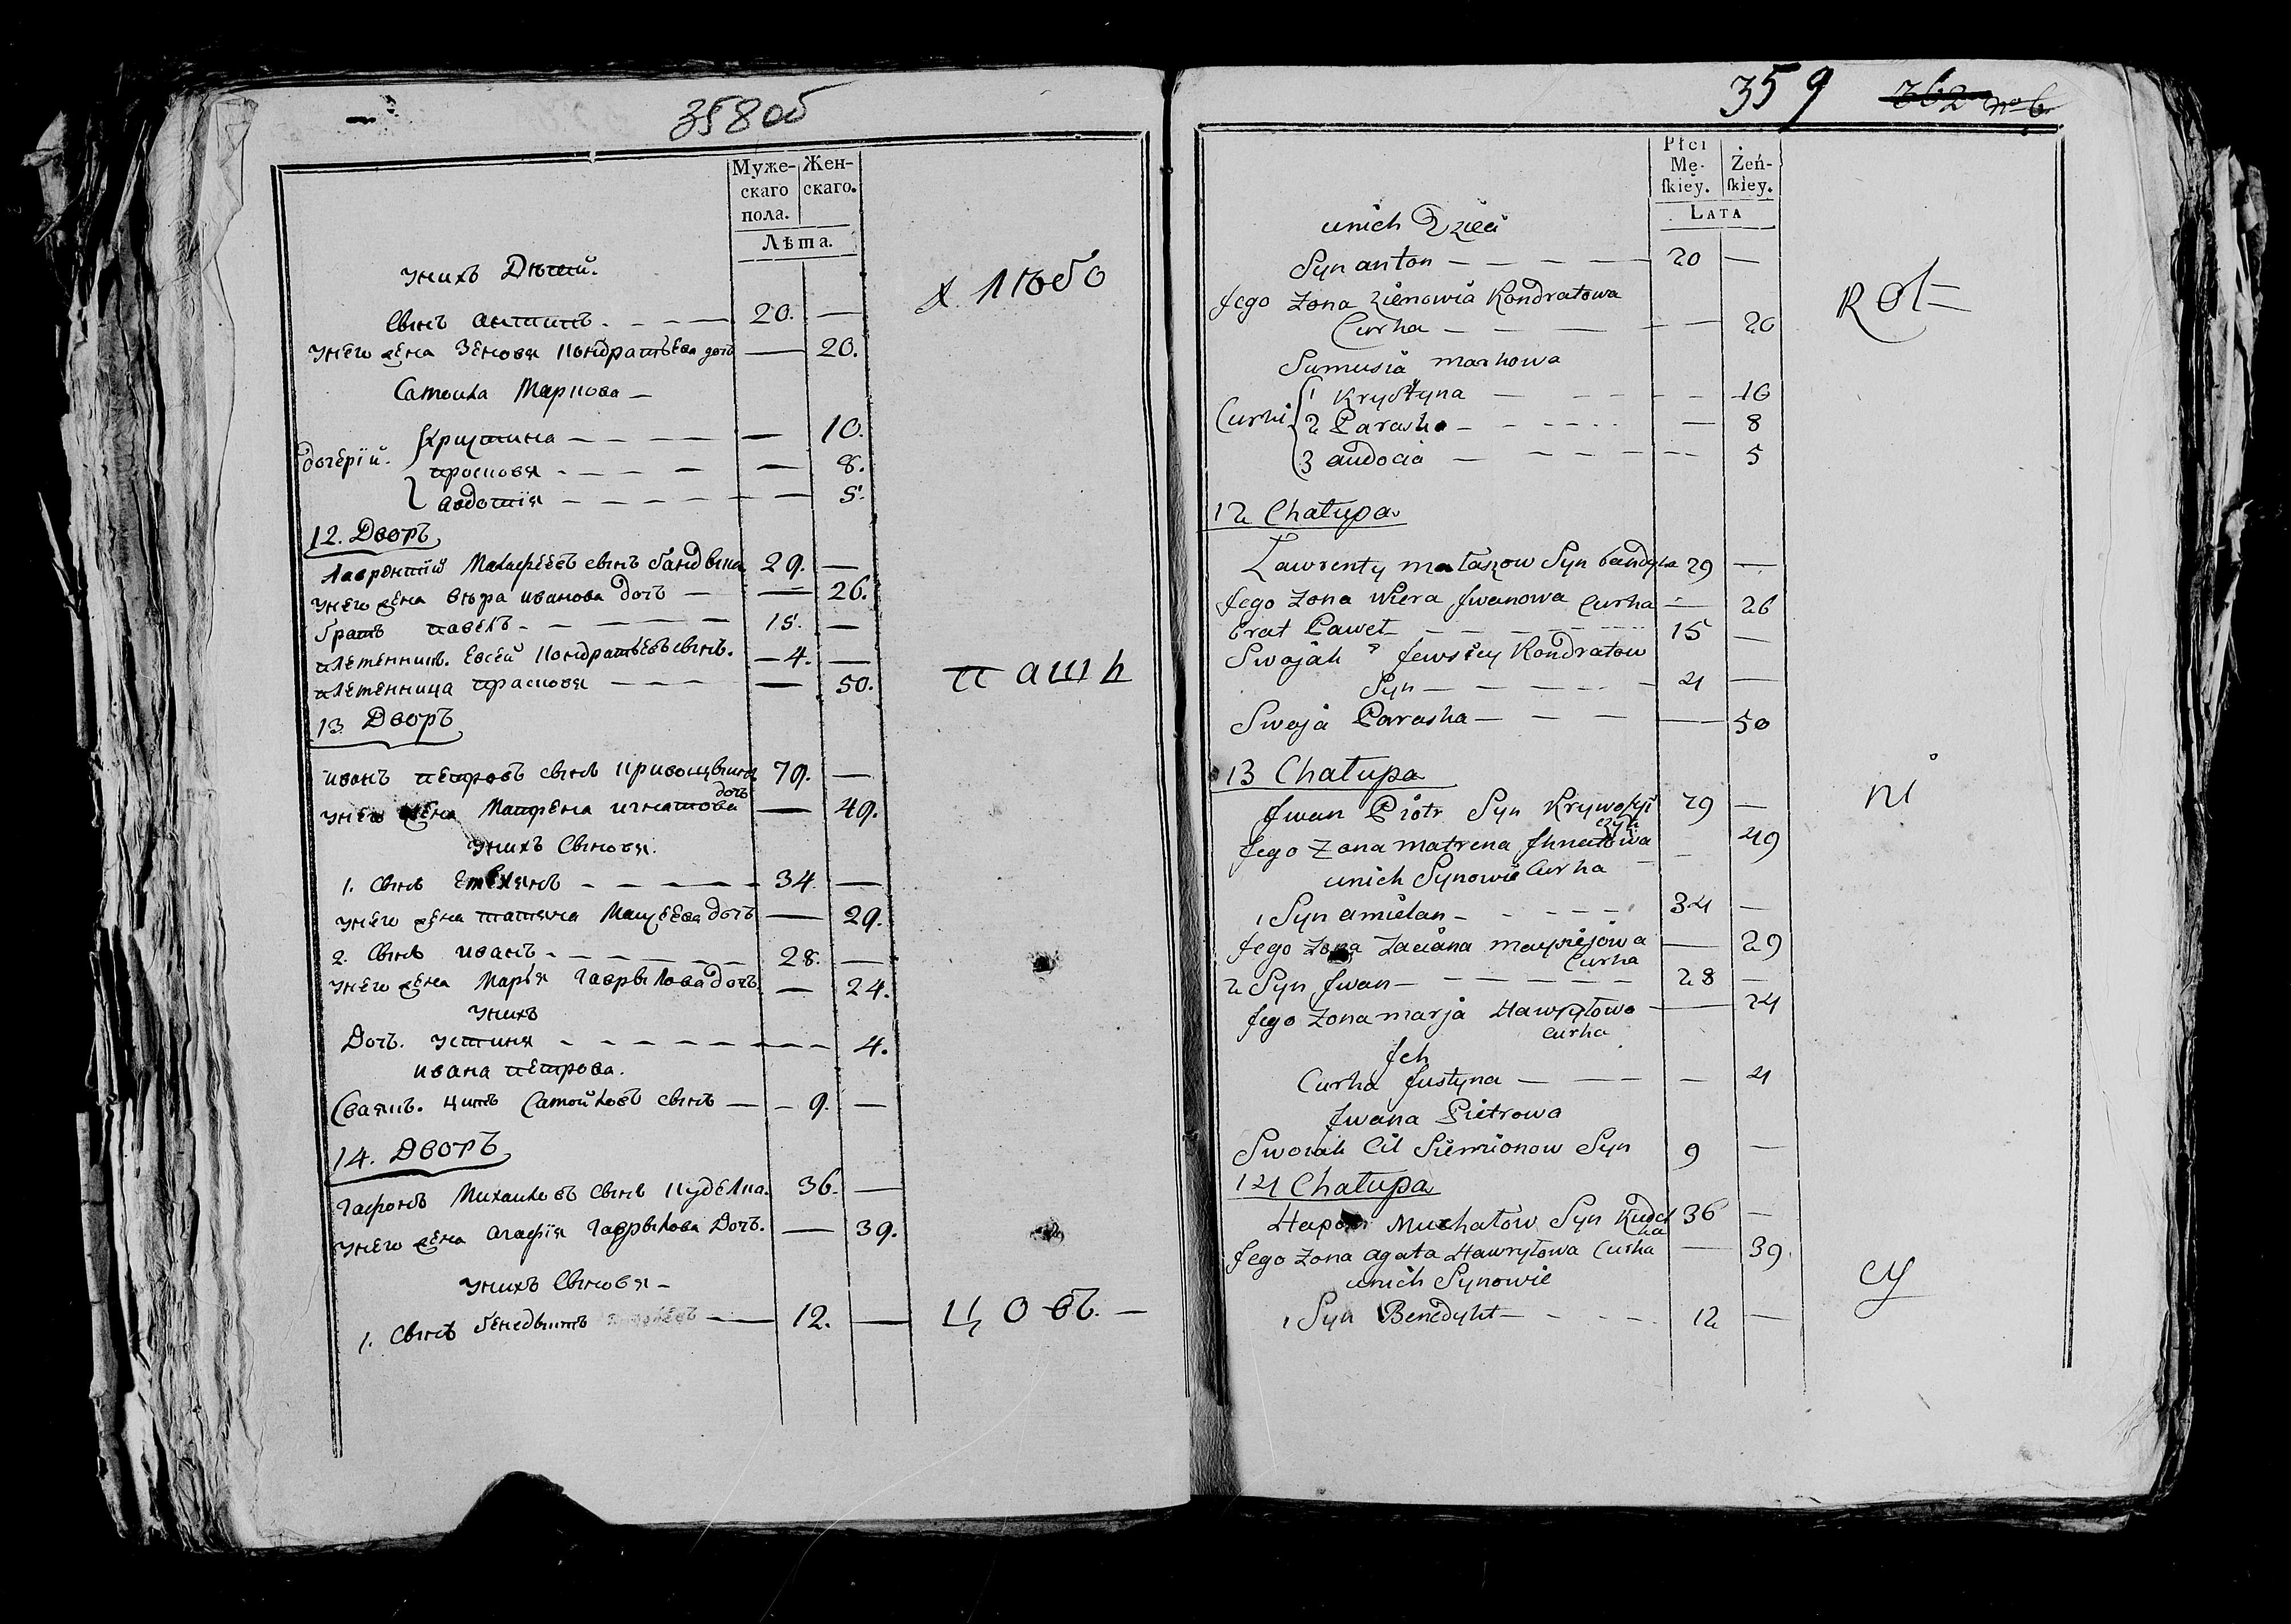 358 об
Муже- Жен-
скаго скаго.
пола.
Лѣта.
у нихъ Дѣтей.
Свінъ антипъ. 20. —
у него жена Зеновя Кондратьева доч — 20.
Самойла Маркова —
дочерїй.
Кристина — 10.
прасковя — 8.
авдотїя — 5.
12. Дворъ
Лаврентїй свінъ бандвіка 29. —
у него жена вѣра иванова дочъ — 26.
братъ павелъ — 15. —
племенникъ. Евсей Кондратьевъ свінъ. — 4. —
племенница прасковя — 50.
13. Дворъ
иванъ петровъ свінъ 79. —
дочъ
у него жена Матрена игнатова — 49.
у нихъ Свіновя.
1. свінъ Емелянъ — 34. —
у него жена татяна дочъ — 29.
2. свінъ иванъ — 28. —
у него жена Маръя гаврвілова дочъ — 24.
у нихъ
Дочъ. устиня — 4.
ивана петрова.
Сваякъ. Самойловъ свінъ — 9. —
14. Дворъ
гафонъ Михаиловъ свінъ Куделка. 36. —
у него жена агафїя гаврвілова Дочъ. — 39.
у нихъ Свіновя —
1. свінъ бенедвіктъ — 12. —
х лѣбо
паш
цовъ. —
359
Płci
Mę- Żeń-
ſkiey. ſkiey.
LATA
u nich Dzieci
Syn anton — 20 —
Jego Zona Zienowia Kondratowa
Curka — 20
Sumusia markowa
Curki
1 Krystyna — 10
2 Paraska — 8
3 audocia — 5
12 Chałupa
Ławrenty Syn bandyka 29 —
Jego Zona Wiera Jwanowa Curka — 26
brat Paweł — 15 —
Swojak Jewsiey Kondratow
Syn — 4 —
Swoja Paraska — 50
13 Chałupa
Jwan Piotr Syn 79 —
Jego Zona matrena Jhnatowa 49
u nich Synowie Curka —
1 Syn amielan — 34 —
Jego Zona Taciana — 29
Curka
2 Syn Jwan — 28 —
Jego Zona marja Hawryłowa — 24
Curka
Jch
Curka Justyna — 4
Jwana Pietrowa
Swoiak Cit Siemionow Syn 9 —
14 Chałupa
Syn Kudel 36 —
ka
Jego Zona agata Hawryłowa Curka — 39.
u nich Synowie
1 Syn Benedykt — 12 —
Rol=
ni
cy